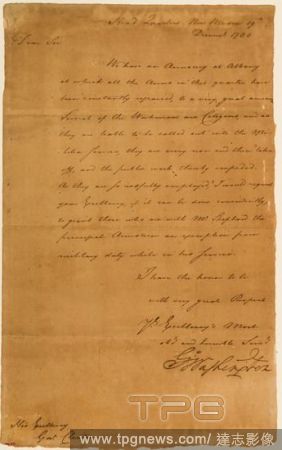 Head Quarters New Windsor 19th
Decemr. 1780
Dear Sir
We have an Armory at Albany
at which all the Arms in that quarter have
been constantly repaired, to a very great amount
Several of the Workmen are Citizens, and as
they are liable to be called out into the Mi-
litia Service, they are every now and then taken
off, and the public work thereby impeded.
As they are so usefully employed, I would request
your Excellency if it can be done conveniently,
to grant those who are with Mr. Shepherd the
principal Armorer an exemption from
military duty while in his service.
I have the honor to be
with very great Respect
Yr. Excellency's Most
Obt. and humble Servt.
Go: Washington
His Excellency
Govr. Clinton
TPG
www.tpgnews.com/ 達志影像